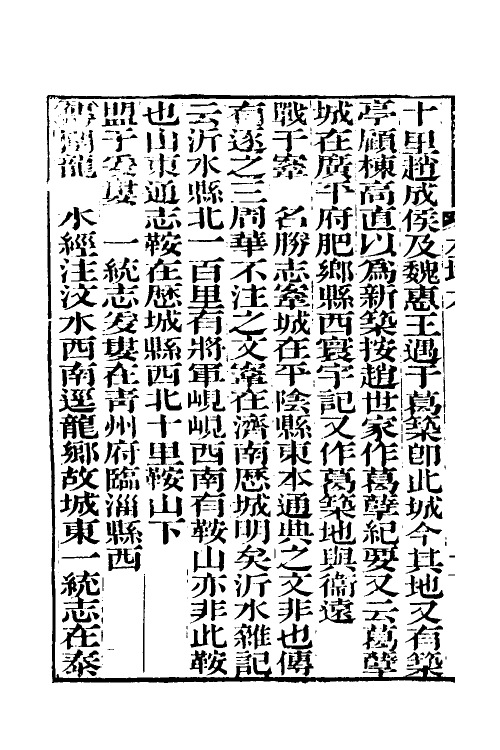 十里趙成侯及魏惠王遇于葛築卽此城今其地又有築
亭顧棟高直以爲新築按趙世家作葛孽紀要又云葛孽
城在廣平府肥鄉縣西寰宇記又作葛築地與衞遠
戰于鞌　名勝志鞌城在平陰縣東本通典之文非也傳
有逐之三周華不注之文鞌在濟南歷城明矣沂水雜記
云沂水縣北一百里有將軍峴峴西南有鞍山亦非此鞍
也山東通志鞍在歷城縣西北十里鞍山下
盟于爰婁　一統志爰婁在青州府臨淄縣西
傳圍龍　水經注汶水西南逕龍鄉故城東一統志在泰